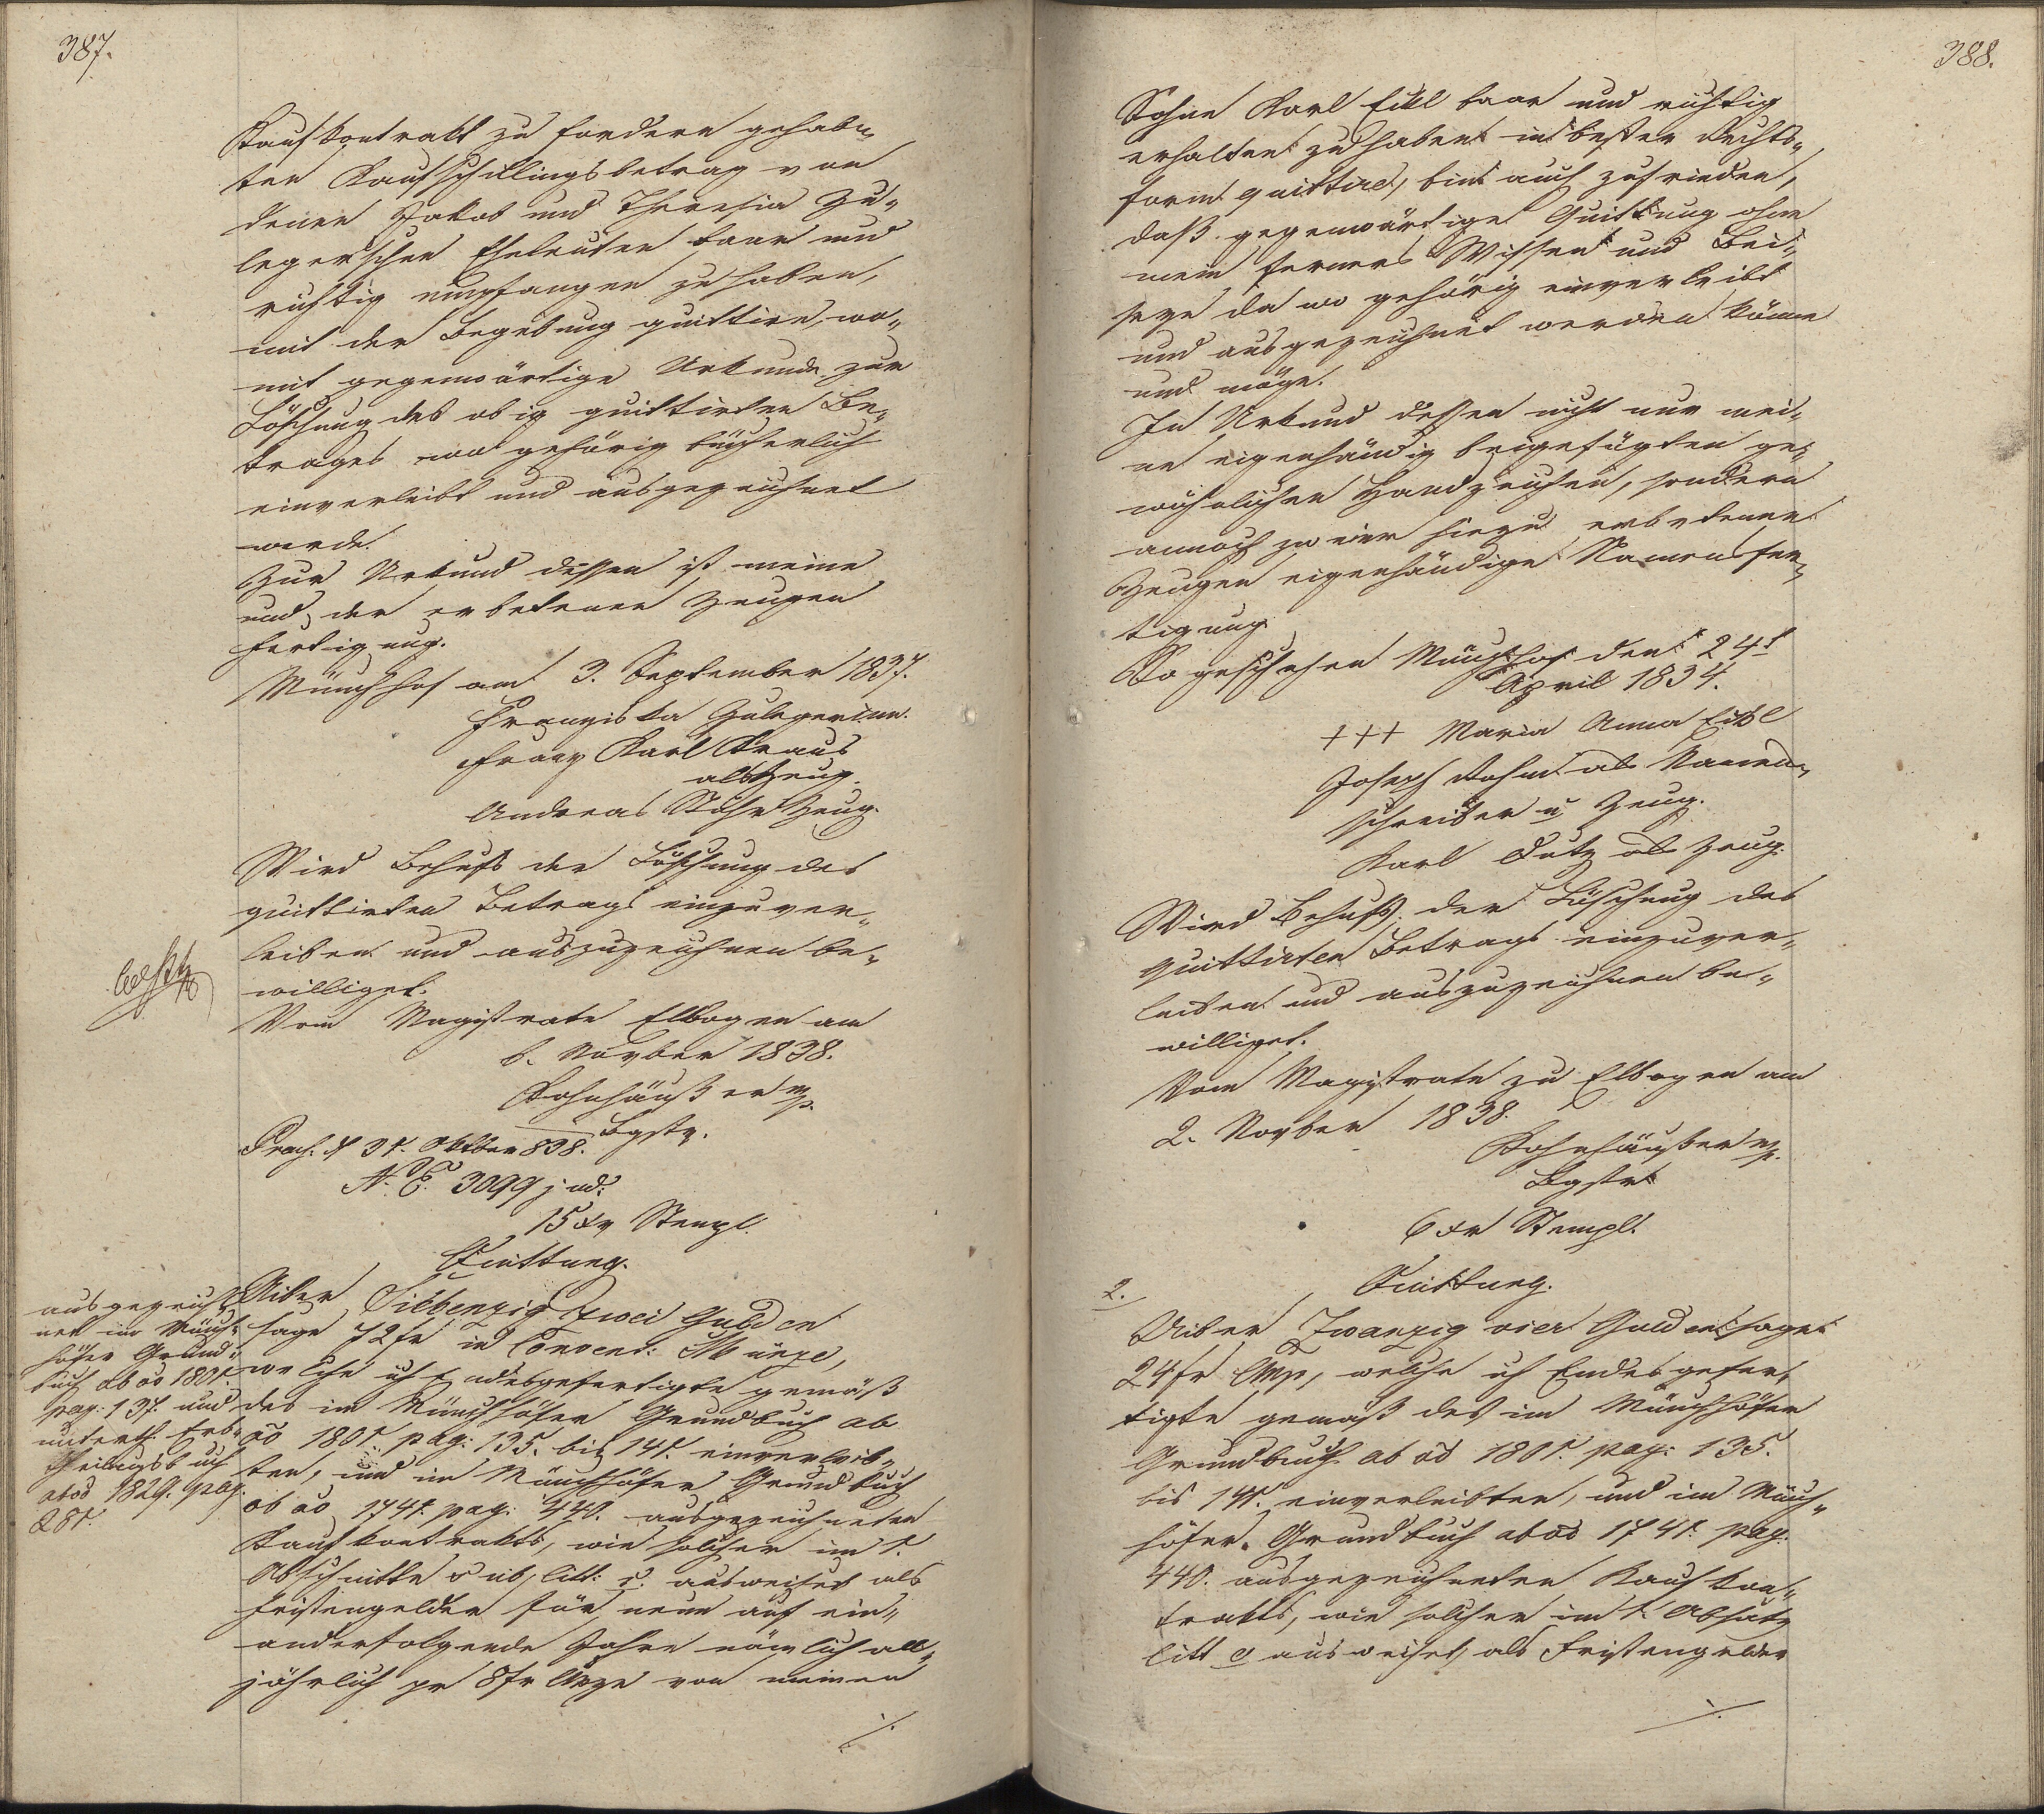 387.
Kaufkontrakt zu fordern gehab„
ten Kaufschillingsbetrag von
denen Jakob und Theresia Zu„
leger'schen Eheleuten baar und
richtig empfangen zu haben,
mit der Begebung quittire, wo„
mit gegenwärtige Urkunde zur
Löschung des obig quittirten Be„
trages wo gehörig bücherlich
einverleibt und ausgezeichnet
werde.
Zur Urkund dessen ist meine
und der erbetenen Zeugen
Fertigung.
Münchhof am 3. September 1837.
Franziska Zulegerinn.
Franz Karl Kraus
als Zeug.
Andreas Stöhr Zeug.
Wird Behufs der Löschung des
quittirten Betrags einzuver„
leiben und auszuzeichnen be„
williget.
Vom Magistrate Elbogen am
6. Novber 1838.
Bgstr.
Praes. d 31. Oktber 838.
N. E. 3099 jud.
15 xr Stempl.
Quittung.
ausgezeich„
net im Münch„
höfer Grund„
buch ab ao 1801.
pag: 137. und
unterth. Erb„
theilungsbuch
ab ao 1829. pag.
281.
Uiber Siebenzig zwei Gulden
sage 72 fr in Convent: Münze,
welche ich Endesgefertigte gemäß
des im Münchhöfer Grundbuch ab
ao 1801. pag: 135. bis 141. einverleib„
ten, und im Münchhöfer Grundbuch
ab ao 1741. pag: 440. ausgezeichneten
Kaufkontrakts, wie solcher im 1.
Abschnitte sub litt: c. ausweiset als
Fristengelder für neun auf ein„
anderfolgende Jahre nämlich all„
jährlich pr 8 fr CMze von meinen
./.
388.
Sohne Karl Eckl baar und richtig
erhalten zu haben in bester Rechts„
form quittire, bin auch zufrieden,
daß gegenwärtige Quittung ohne
mein ferneres Wissen und Bei„
seyn da wo gehörig einverleibt
und ausgezeichnet werden könne
und möge.
In Urkund dessen nicht nur mei„
ne eigenhändig beigefügten ge„
wöhnlichen Handzeichen, sondern
annoch zweier hiezu erbetenen
Zeugen eigenhändige Namensfer„
tigung.
So geschehen Münchhof den 24t
April 1834.
+++ Maria Anna Eckl
Joseph als Namens„
schreiber u Zeug.
Karl Lutz als Zeug.
Wird Behufs der Löschung des
quittirten Betrags einzuver„
leiben und auszuzeichnen be„
williget.
Vom Magistrate zu Elbogen am
2. Novber 1838.
Bgstr
6 xr Stempl.
2.
Quittung.
Uiber Zwanzig vier Gulden sage
24 fr CMze, welche ich Endesgefer„
tigte gemäß des im Münchhöfer
Grundbuch ab ao 1801. pag: 135.
bis 141. einverleibten, und im Münch„
höfer Grundbuch ab ao 1741. pag.
440. ausgezeichneten Kaufkon„
trakts, wie solcher im 1. Absatz
litt c ausweiset, als Fristengelder
./.